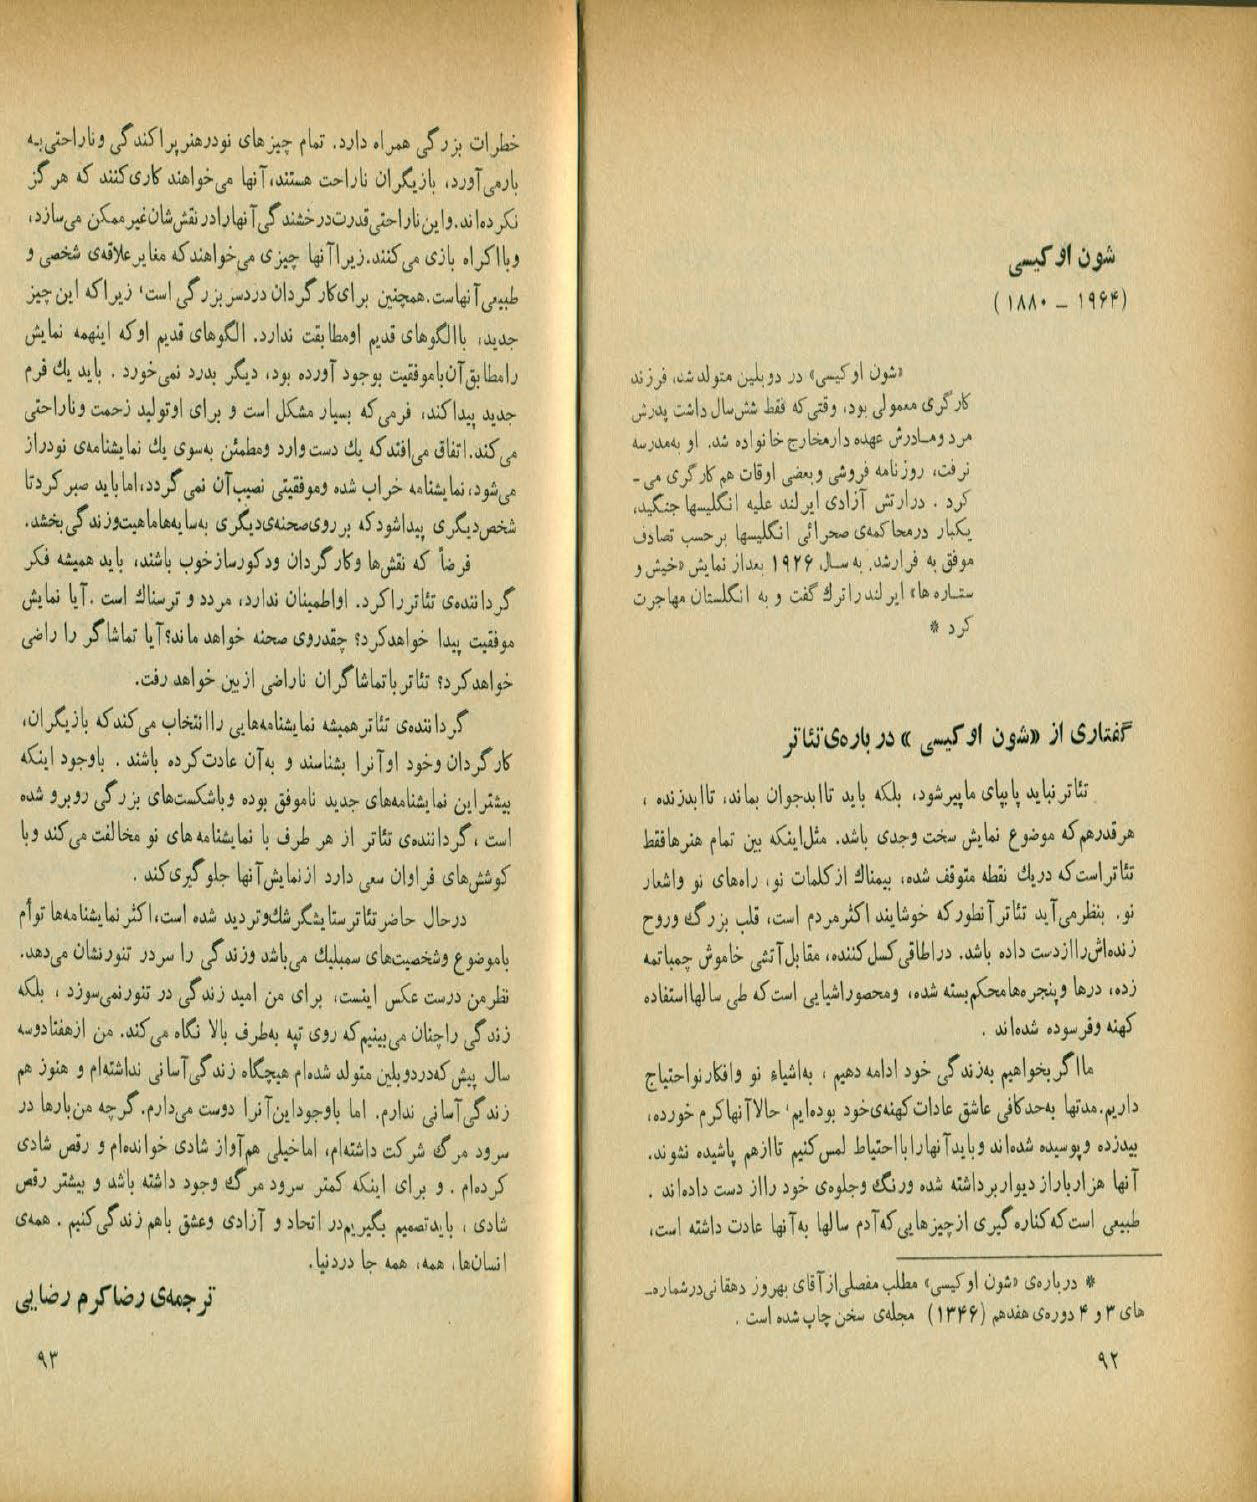 شون اوکیسی
(۱۸۸۰ ـ ۱۹۶۴)
«شون اوکیسی» در دوبلین متولد شد، فرزند
کارگری معمولی بود، وقتی‌که فقط شش‌سال داشت پدرش
مرد ومادرش عهده دارمخارج خانواده شد. او به‌مدرسه
نرفت، روزنامه فروشی وبعضی اوقات هم کارگری می‌-
کرد . درارتش آزادی ایرلند علیه انگلیسها جنگید،
یکبار درمحاکمه‌ی صحرائی انگلیسها برحسب تصادف
موفق به فرارشد. به‌سال ۱۹۲۶ بعداز نمایش «خیش و
ستاره ها» ایرلندراترك گفت و به انگلستان مهاجرت
کرد *
گفتاری از «شون اوکیسی» درباره‌ی تئاتر
تئاترنباید پابپای ماپیرشود، بلکه باید تاابدجوان بماند، تاابدزنده ،
هرقدرهم‌که موضوع نمایش سخت وجدی باشد. مثل‌اینکه بین تمام هنرهافقط
تئاتراست‌که دریك نقطه متوقف شده، بیمناك ازکلمات نو، راه‌های نو واشعار
نو. بنظرمی‌آید تئاترآنطورکه خوشایند اکثرمردم است، قلب بزرگ وروح
زنده‌اش‌راازدست داده باشد. دراطاقی کسل‌کننده، مقابل‌آتشی خاموش چمباتمه
زده، درها وپنجره‌هامحکم‌بسته شده، ومحصوراشیایی است‌که طی سالهااستفاده
کهنه وفرسوده شده‌اند .
مااگربخواهیم به‌زندگی خود ادامه دهیم ، به‌اشیاء نو وافکارنواحتیاج
داریم.مدتها به‌حدکافی عاشق عادات کهنه‌ی‌خود بوده‌ایم، حالاآنهاکرم خورده،
بیدزده وپوسیده شده‌اند وبایدآنهارابااحتیاط لمس‌کنیم تاازهم پاشیده نشوند.
آنها هزارباراز دیواربرداشته شده ورنگ وجلوه‌ی خود رااز دست داده‌اند .
طبیعی است‌که‌کناره‌گیری ازچیزهایی‌که‌آدم سالها به‌آنها عادت داشته است،
* درباره‌ی «شون اوکیسی» مطلب مفصلی‌ازآقای بهروز دهقانی‌درشماره‌ـ
های ۳ و ۴ دوره‌ی هفدهم (۱۳۴۶) مجله‌ی سخن چاپ شده است .
۹۲
خطرات بزرگی همراه دارد. تمام چیزهای نودرهنرپراکندگی وناراحتی‌به
بارمی‌آورد، بازیگران ناراحت هستند،آنها می‌خواهند کاری‌کنند که هرگز
نکرده‌اند.واین‌ناراحتی‌قدرت‌درخشندگی‌آنهارادرنقش‌شان‌غیرممکن می‌سازد،
وبااکراه بازی می‌کنند.زیراآنها چیزی می‌خواهندکه مغایرعلاقه‌ی شخصی و
طبیعی‌آنهاست.همچنین برای‌کارگردان دردسربزرگی است، زیراکه این‌چیز
جدید، باالگوهای قدیم اومطابقت ندارد. الگوهای قدیم اوکه اینهمه نمایش
رامطابق‌آن‌باموفقیت بوجود آورده بود، دیگر بدرد نمی‌خورد . باید یك فرم
جدید پیداکند، فرمی‌که بسیار مشکل است و برای اوتولید زحمت وناراحتی
می‌کند.اتفاق می‌افتدکه یك دست‌وارد ومطمئن به‌سوی یك نمایشنامه‌ی نودراز
می‌شود، نمایشنامه خراب شده وموفقیتی نصیب‌آن نمی‌گردد،اماباید صبرکردتا
شخص‌دیگری پیداشودکه برروی‌صحنه‌ی‌دیگری به‌سایه‌هاماهیت‌وزندگی‌بخشد.
فرضاً که نقش‌ها وکارگردان ودکورسازخوب باشند، باید همیشه فکر
گرداننده‌ی تئاترراکرد. اواطمینان ندارد، مردد و ترسناك است .آیا نمایش
موفقیت پیدا خواهدکرد؟ چقدروی صحنه خواهد ماند؟آیا تماشاگر را راضی
خواهدکرد؟ تئاترباتماشاگران ناراضی ازبین خواهد رفت.
گرداننده‌ی تئاترهمیشه نمایشنامه‌هایی راانتخاب می‌کندکه بازیگران،
کارگردان وخود اوآنرا بشناسند و به‌آن عادت‌کرده باشند . باوجود اینکه
بیشتراین نمایشنامه‌های جدید ناموفق بوده وباشکست‌های بزرگی روبرو شده
است ، گرداننده‌ی تئاتر از هر طرف با نمایشنامه‌های نو مخالفت می‌کند وبا
کوشش‌های فراوان سعی دارد ازنمایش‌آنها جلوگیری‌کند .
درحال حاضرتئاترستایشگرشك‌وتردید شده است،اکثرنمایشنامه‌ها توأم
باموضوع وشخصیت‌های سمبلیك می‌باشد وزندگی را سردر تنورنشان می‌دهد.
نظرمن درست عکس اینست، برای من امید زندگی در تنورنمی‌سوزد ، بلکه
زندگی راچنان می‌بینیم‌که روی تپه به‌طرف بالا نگاه می‌کند. من ازهفتادوسه
سال پیش‌که‌دردوبلین متولد شده‌ام هیچگاه زندگی‌آسانی نداشته‌ام و هنوز هم
زندگی‌آسانی ندارم. اما باوجوداین‌آنرا دوست می‌دارم. گرچه من‌بارها در
سرود مرگ شرکت داشته‌ام، اماخیلی هم‌آواز شادی خوانده‌ام و رقص شادی
کرده‌ام . و برای اینکه کمتر سرود مرگ وجود داشته باشد و بیشتر رقص
شادی ، بایدتصمیم بگیریم‌در اتحاد و آزادی وعشق باهم زندگی‌کنیم . همه‌ی
انسان‌ها، همه، همه جا دردنیا.
ترجمه‌ی رضاکرم رضایی
۹۳